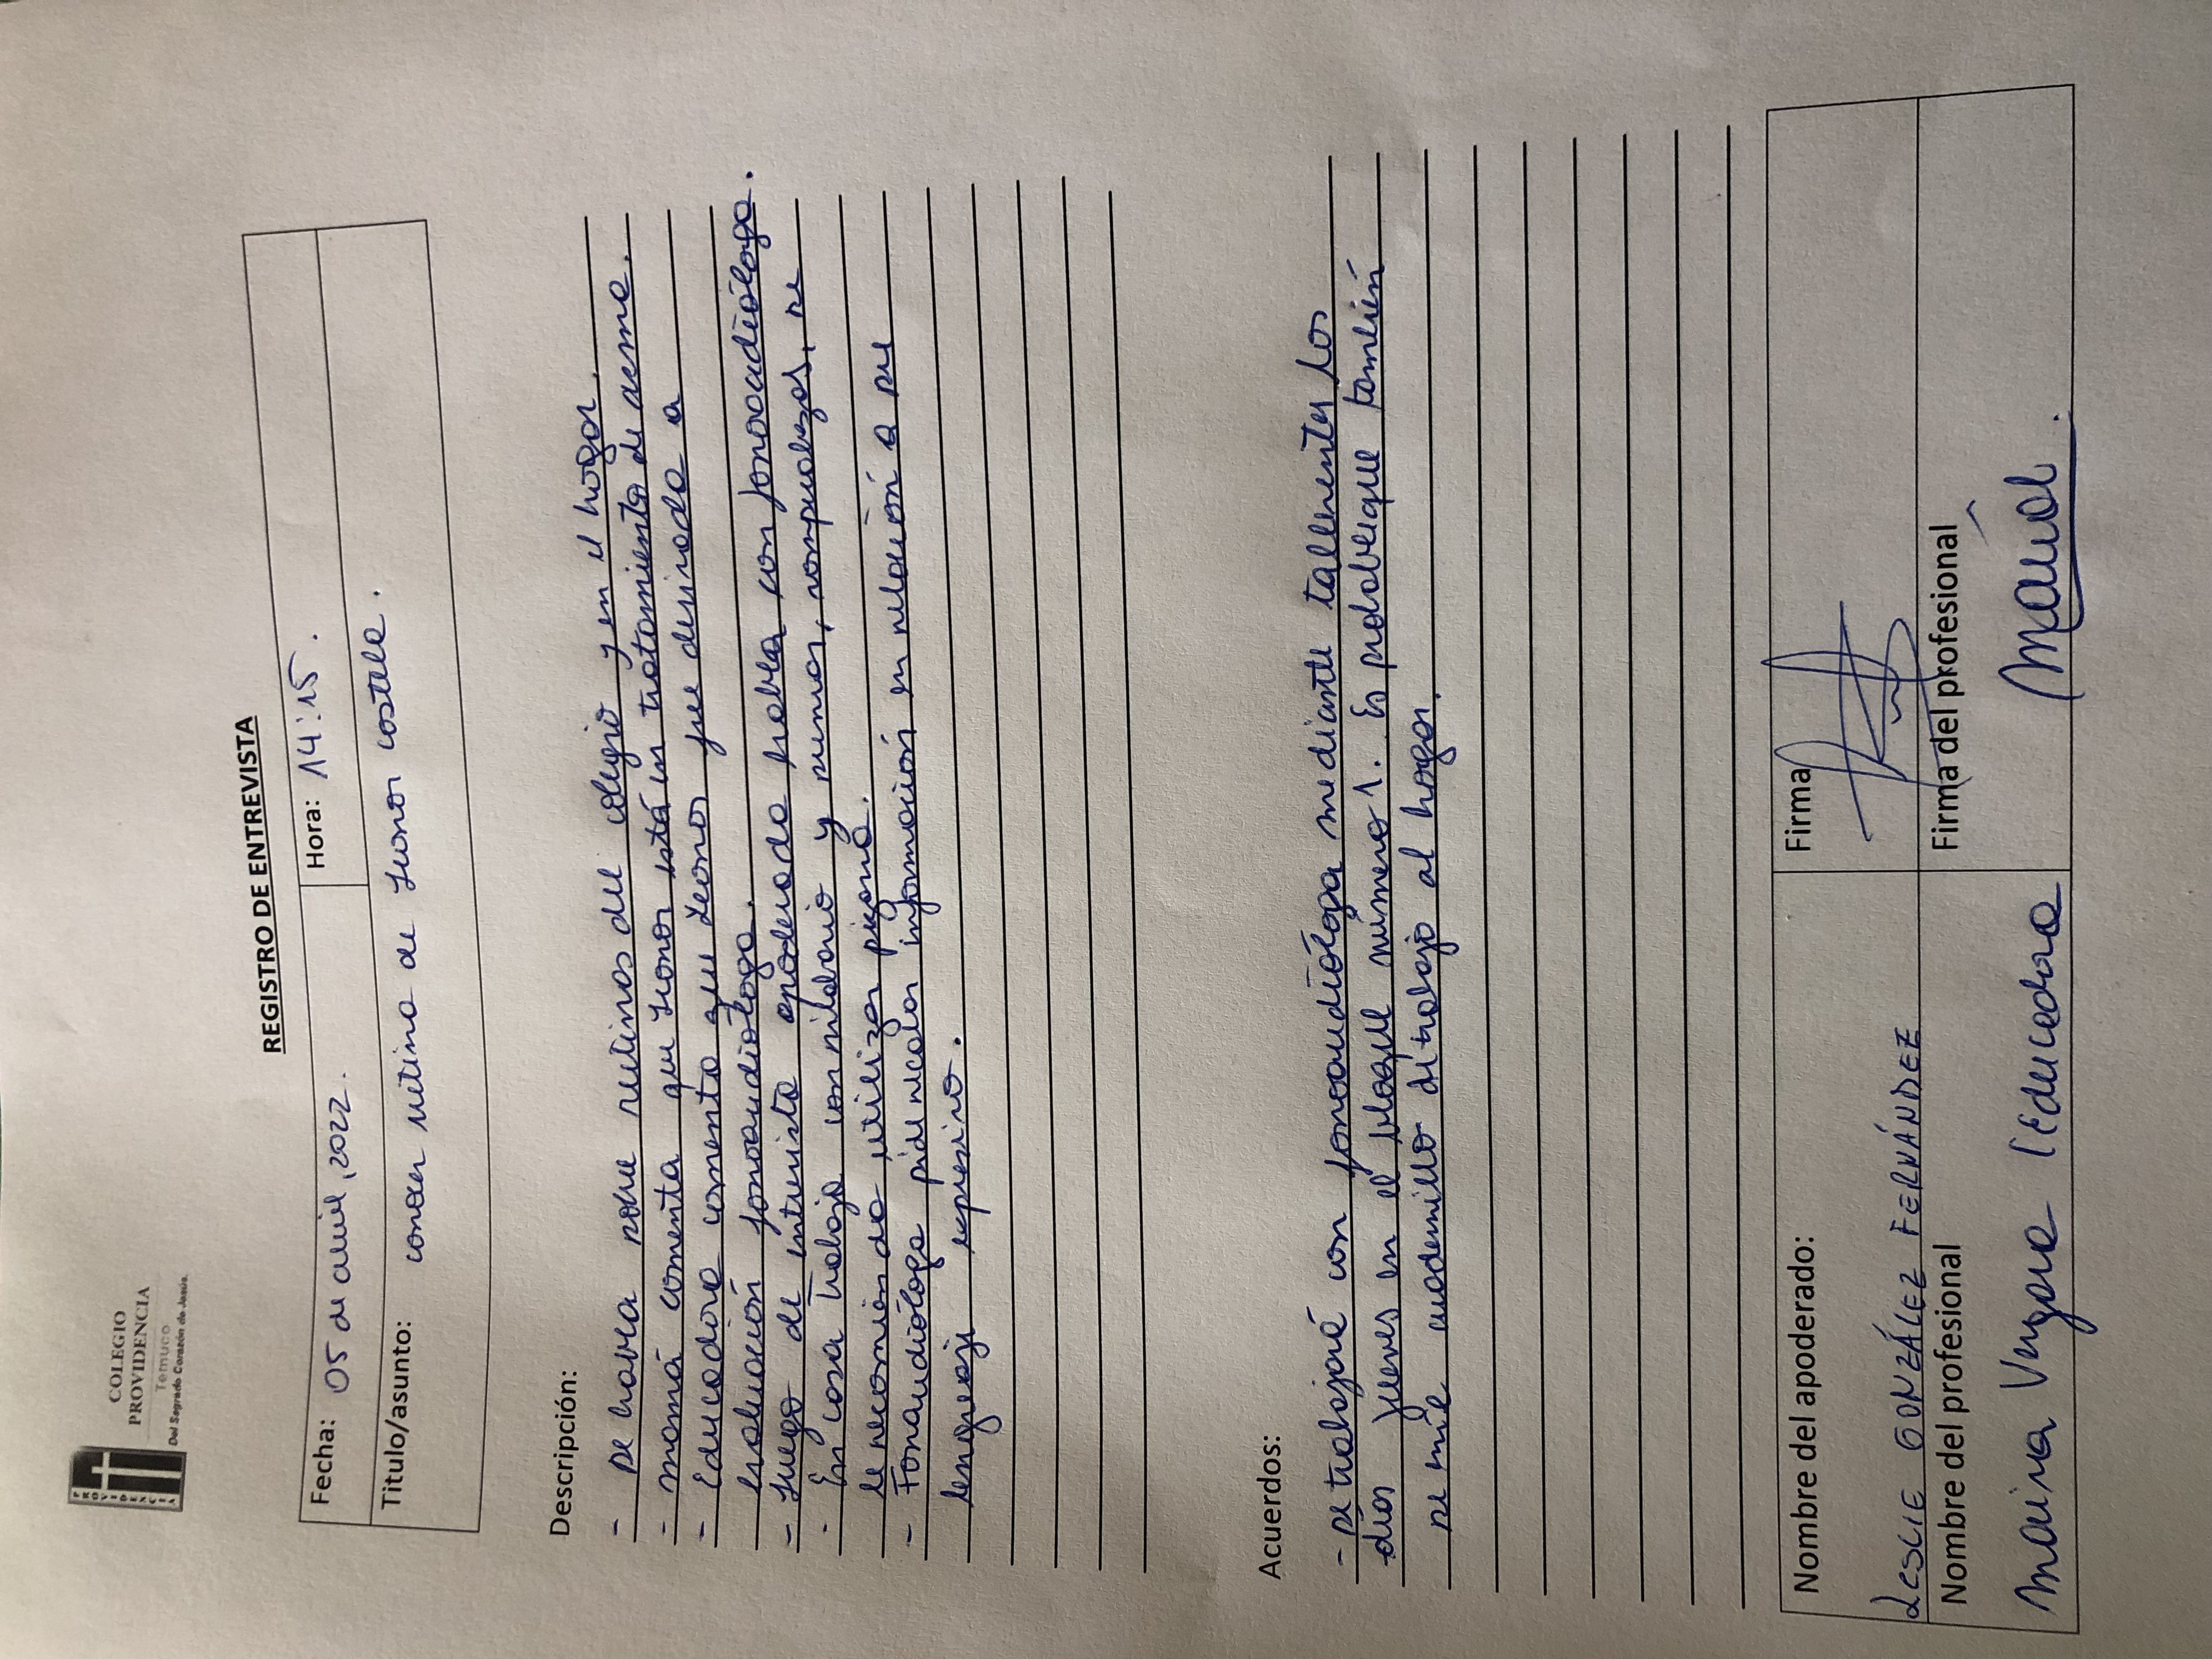 COLEGIO
PROVIDENCIA
Temuco
Del Sagrado Corazón de Jesús
PROVIDENCIA
REGISTRO DE ENTREVISTA
Fecha: 05 de abril, 2022. Hora: 14:15.
Titulo/asunto: conocer rutina de Leonor costela.
Descripción:
- se habla sobre rutinas del colegio y en el hogar.
- mamá comenta que Leonor está en tratamiento de asma.
- Educadora comenta que Leonor fue derivada a
evaluación fonoaudiologa.
- Luego de entrevista apoderada habla con fonoaudiólogo.
- En casa trabaja con silabario y sumas, rompecabezas, se
le recomienda utilizar pizarra.
- Fonoaudióloga pide información en relación a su
lenguaje expresivo.
Acuerdos:
- se trabajará con fonoaudióloga mediante taller los
días jueves en el bloque número 1. Es probable que también
se envíe cuadernillo de trabajo al hogar.
Nombre del apoderado: Firma
LESLIE GONZÁLEZ FERNÁNDEZ
Nombre del profesional Firma del profesional
Vergara Educadora